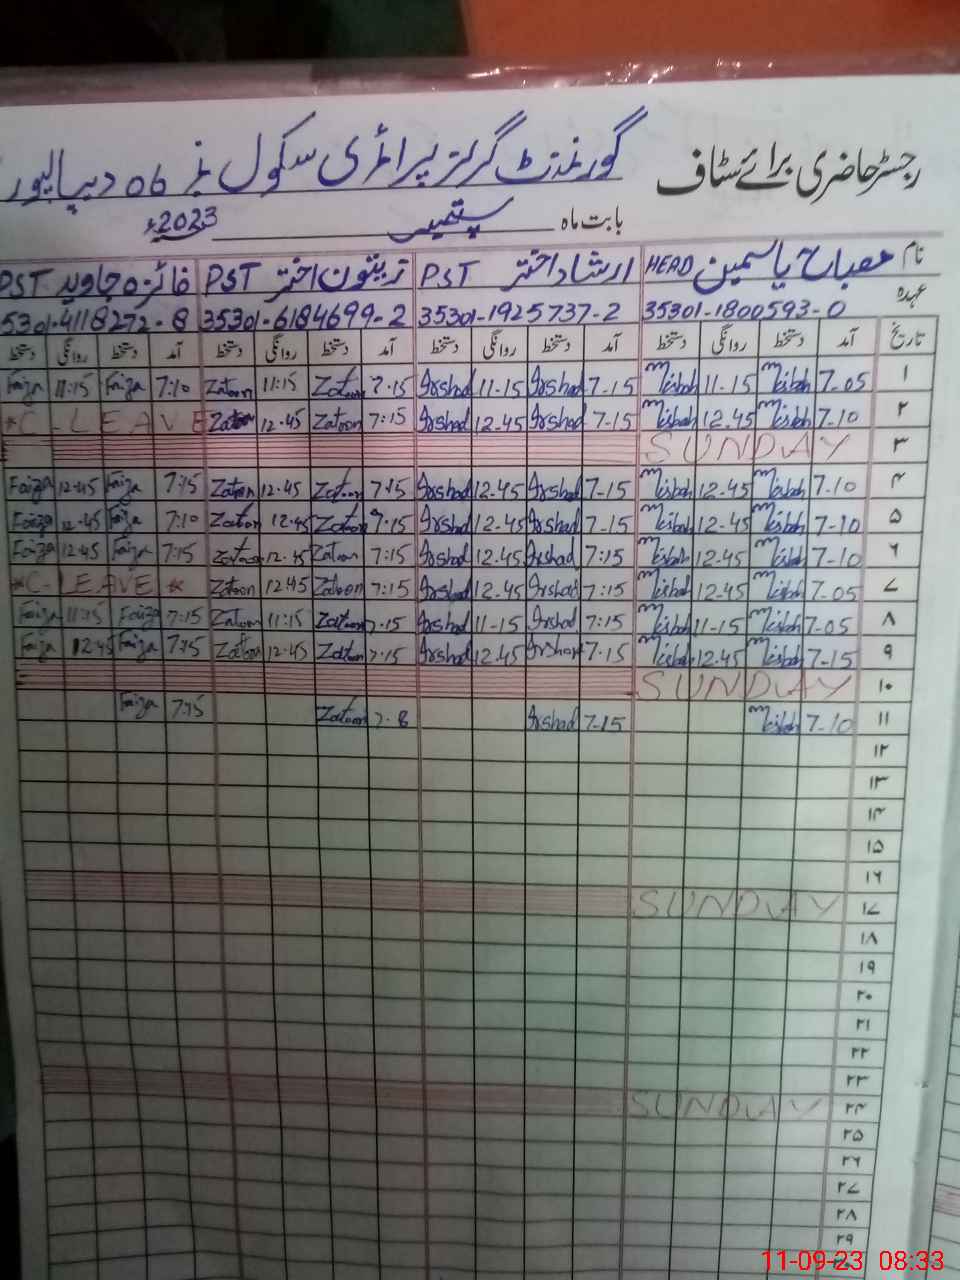 رجسٹر حاضری برائے سٹاف گورنمنٹ گرلز پرائمری سکول نمبر 06 دیپالپور
بابت ماہ ستمبر 2023ء
نام مصباح یاسمین HEAD ارشاد اختر PST زیتون اختر PST فائزہ جاوید PST
عہدہ 35301-1800593-0 35301-1925737-2 35301-6184699-2 5301-4118272-8
تاریخ آمد دستخط روانگی دستخط آمد دستخط روانگی دستخط آمد دستخط روانگی دستخط آمد دستخط روانگی دستخط
۱ 7-05 Misbah 11-15 Misbah 7-15 Irshad 11-15 Irshad 7-15 Zatoon 11:15 Zatoon 7:10 Faiza 11:15 Faiza
۲ 7-10 Misbah 12.45 Misbah 7-15 Irshad 12.45 Irshad 7:15 Zatoon 12.45 Zatoon *C-LEAVE
۳ SUNDAY
۴ 7-10 Misbah 12-45 Misbah 7-15 Irshad 12.45 Irshad 7:15 Zatoon 12.45 Zatoon 7:15 Faiza 12:45 Faiza
۵ 7-10 Misbah 12-45 Misbah 7-15 Irshad 12.45 Irshad 7-15 Zatoon 12.45 Zatoon 7:10 Faiza 12.45 Faiza
۶ 7-10 Misbah 12.45 Misbah 7:15 Irshad 12.45 Irshad 7:15 Zatoon 12.45 Zatoon 7:15 Faiza 12.45 Faiza
۷ 7-05 Misbah 12.45 Misbah 7:15 Irshad 12.45 Irshad 7:15 Zatoon 12.45 Zatoon *C-LEAVE*
۸ 7-05 Misbah 11-15 Misbah 7:15 Irshad 11-15 Irshad 7.15 Zatoon 11:15 Zatoon 7:15 Faiza 11:15 Faiza
۹ 7-15 Misbah 12.45 Misbah 7-15 Irshad 12.45 Irshad 7.15 Zatoon 12.45 Zatoon 7:15 Faiza 12:45 Faiza
۱۰ SUNDAY
۱۱ 7-10 Misbah 7-15 Irshad 7.8 Zatoon 7:15 Faiza
۱۲
۱۳
۱۴
۱۵
۱۶
۱۷ SUNDAY
۱۸
۱۹
۲۰
۲۱
۲۲
۲۳
۲۴ SUNDAY
۲۵
۲۶
۲۷
۲۸
۲۹
11-09-23 08:33